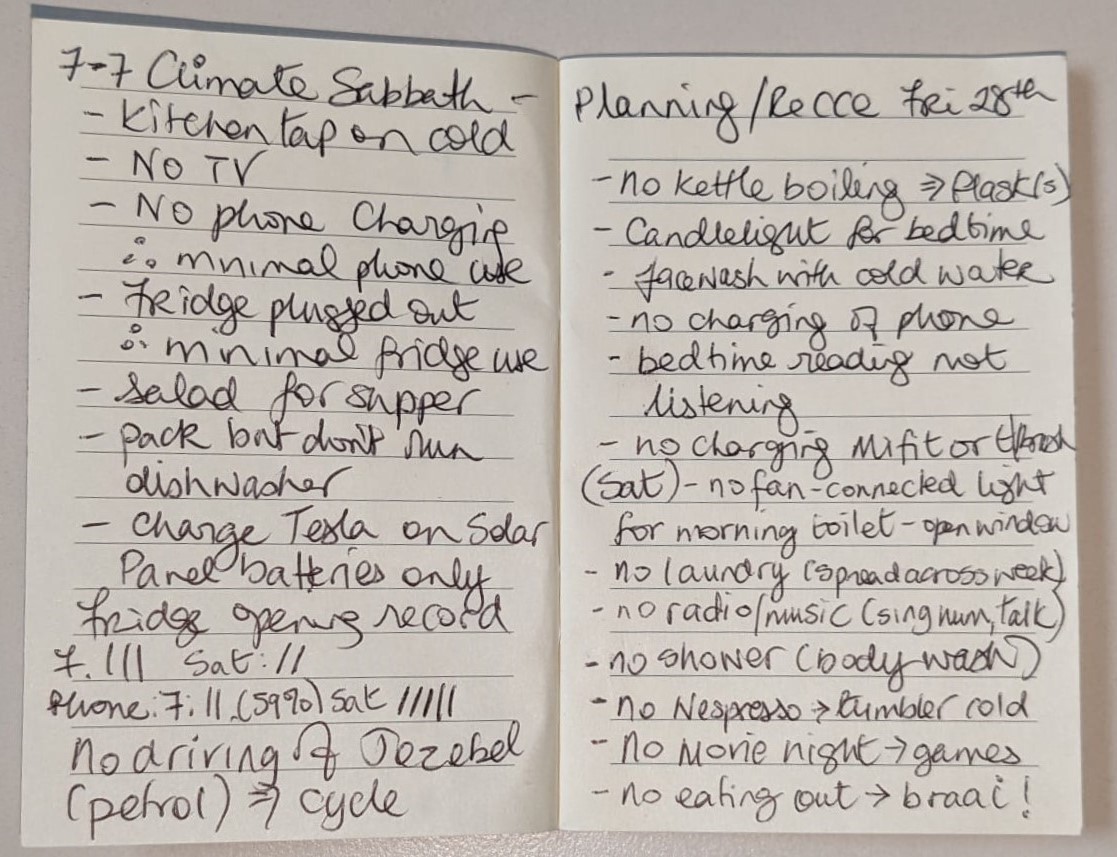 7-7 Climate Sabbath -
- Kitchen tap on cold
- No TV
- No phone Charging
∴ minimal phone use
- Fridge plugged out
∴ minimal fridge use
- Salad for supper
- pack but don't run
dishwasher
- Charge Tesla on Solar
Panel batteries only
fridge opening record
7. III Sat: //
Phone: 7: 11. (59%) Sat /////
no driving of Jezebel
(petrol) ⇒ cycle
Planning/Recce Fri 28th
- no kettle boiling ⇒ flask(s)
- Candlelight for bedtime
- facewash with cold water
- no charging of phone
- bedtime reading not
listening
- no charging Mifit or t/brush
(Sat) - no fan-connected light
for morning toilet - open window
- no laundry (spread across week)
- no radio/music (sing hum, talk)
- no shower (body wash)
- no Nespresso → tumbler cold
- no Movie night → games
- no eating out → braai!